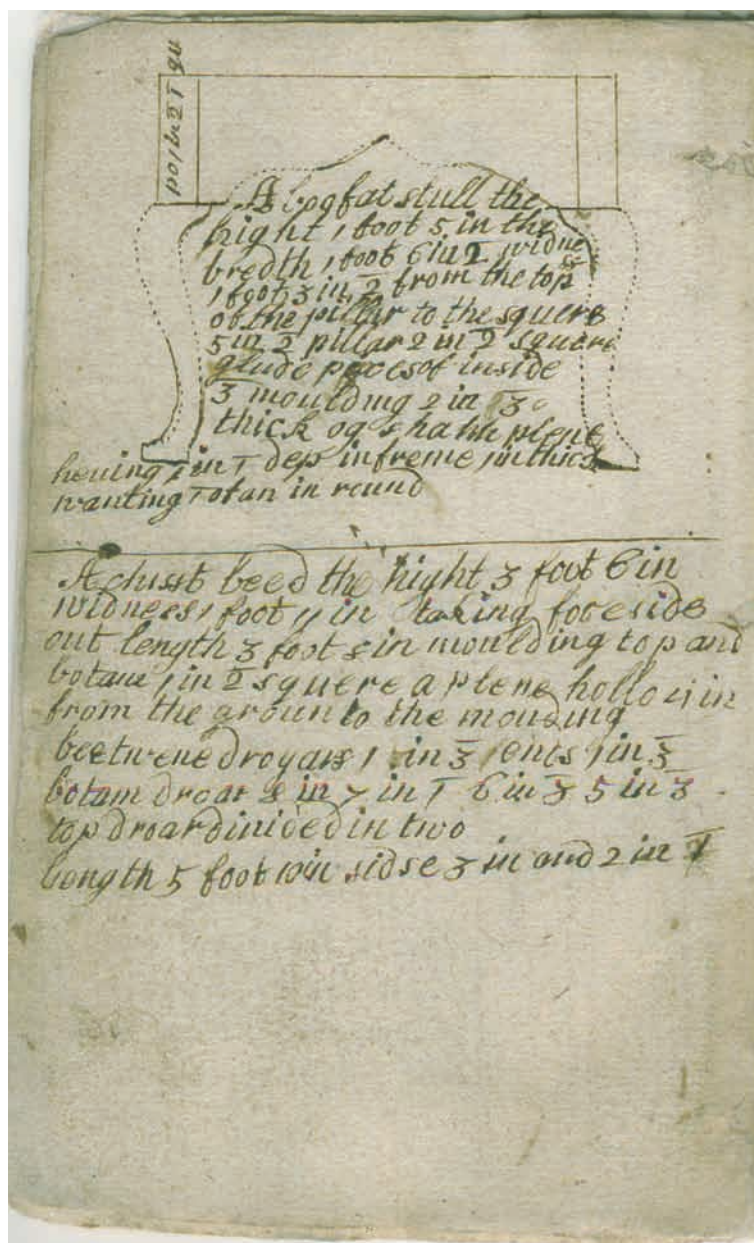 A bogfat stull the
hight 1 foot 5 in the
bredth 1 foot 6 in 2̅ widne
ss
1 foot 3 in 2̅ from the top
of the pillar to the squere
5 in 2̅ pillar 2 in 2̅ squere
glude peces of inside
3̅ moulding 2 in 3̅
thick og
heuing 1 in 1̅ dep in freme in thick
wanting 1̅ of an in round
A chust beed the hight 3 foot 6 in
widness 1 foot 4 in taking foreside
out length 3 foot 8 in moulding top and
botam 1 in 2̅ squere a plene hollo 4 in
from the groun to the mouding
beetwene droyars 1 in 3̅ ents 1 in 3̅
botam droar 8 in 7 in 1̅ 6 in 3̅ 5 in 3̅
top droar diuided in two
length 5 foot 10 in sidse 3 in and 2 in 1̅